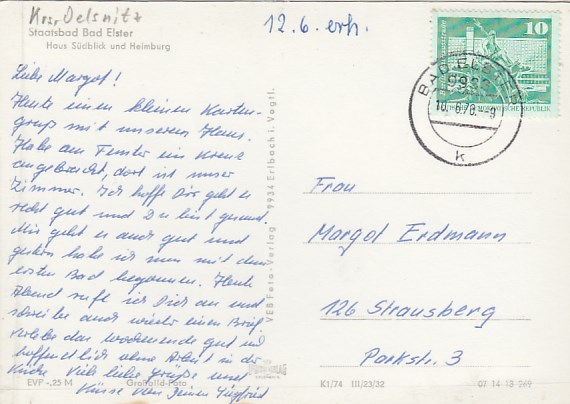 Krs. Oelsnitz
Staatsbad Bad Elster
Haus Südblick und Heimburg
12.6. erh.
10
BAD ELSTER
9933
10.-6.76.-9
k
Liebe Margot!
Heute einen kleinen Karten-
gruß mit unserem Haus.
Habe am Fenster ein Kreuz
angebracht, dort ist unser
Zimmer. Ich hoffe Dir geht es
recht gut und Du bist gesund.
Mir geht es auch gut und
gestern habe ich nun mit dem
ersten Bad begonnen. Heute
Abend rufe ich Dich an und
schreibe auch wieder einen Brief.
Verlebe das Wochenende gut und
hoffentlich ohne Arbeit in der
Küche. Viele liebe Grüße und
Küsse von Deinem Siegfried
VEB Foto-Verlag · 9934 Erlbach i. Vogtl.
Frau
Margot Erdmann
126 Strausberg
Parkstr. 3
EVP -,25 M
Großbild-Foto
K1/74 III/23/32
07 14 13 269